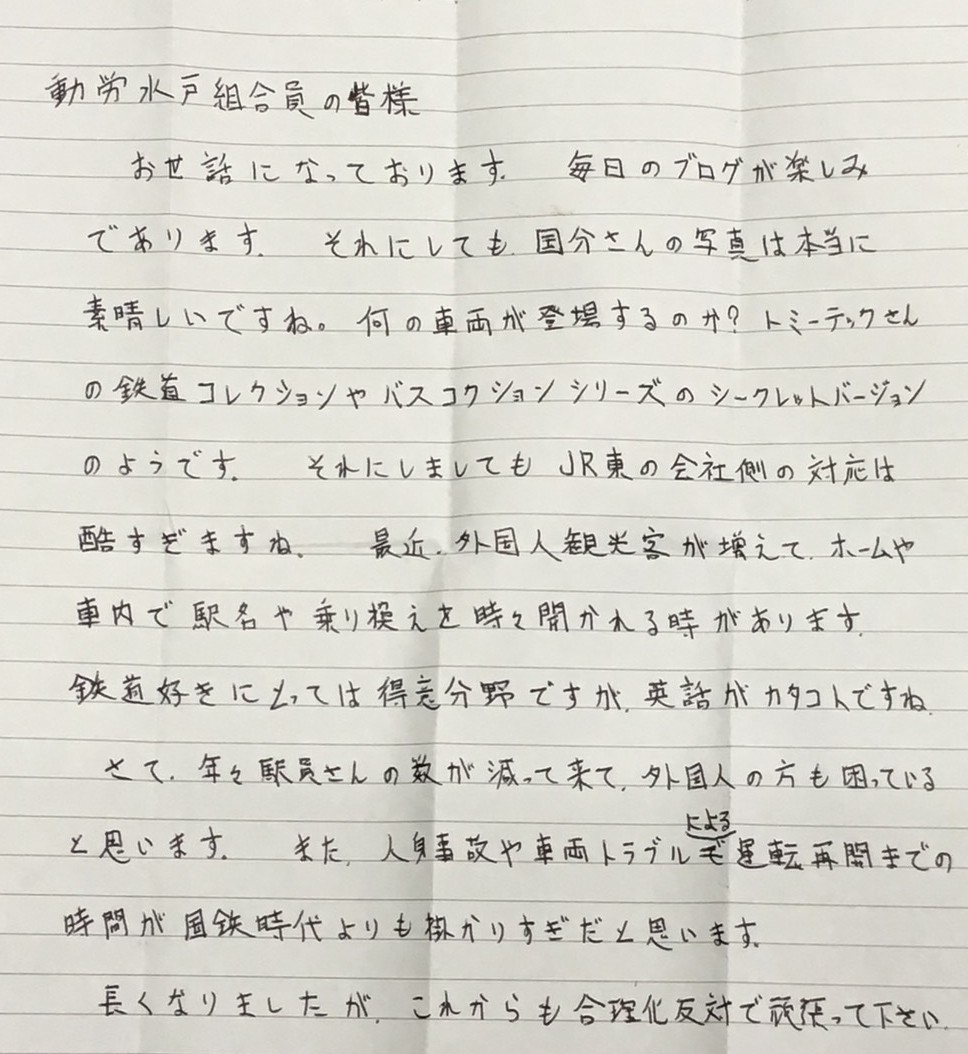 動労水戸組合員の皆様
お世話になっております。 毎日のブログが楽しみ
であります。 それにしても、国分さんの写真は本当に
素晴しいですね。何の車両が登場するのか？トミーテックさん
の鉄道コレクションやバスコクションシリーズのシークレットバージョン
のようです。 それにしましてもJR東の会社側の対応は
酷すぎますね。 最近、外国人観光客が増えて、ホームや
車内で駅名や乗り換えを時々聞かれる時があります。
鉄道好きにとっては得意分野ですが、英話がカタコトですね。
さて、年々駅員さんの数が減って来て、外国人の方も困っている
と思います。 また、人身事故や車両トラブルによる運転再開までの
時間が国鉄時代よりも掛かりすぎだと思います。
長くなりましたが、これからも合理化反対で頑張って下さい。